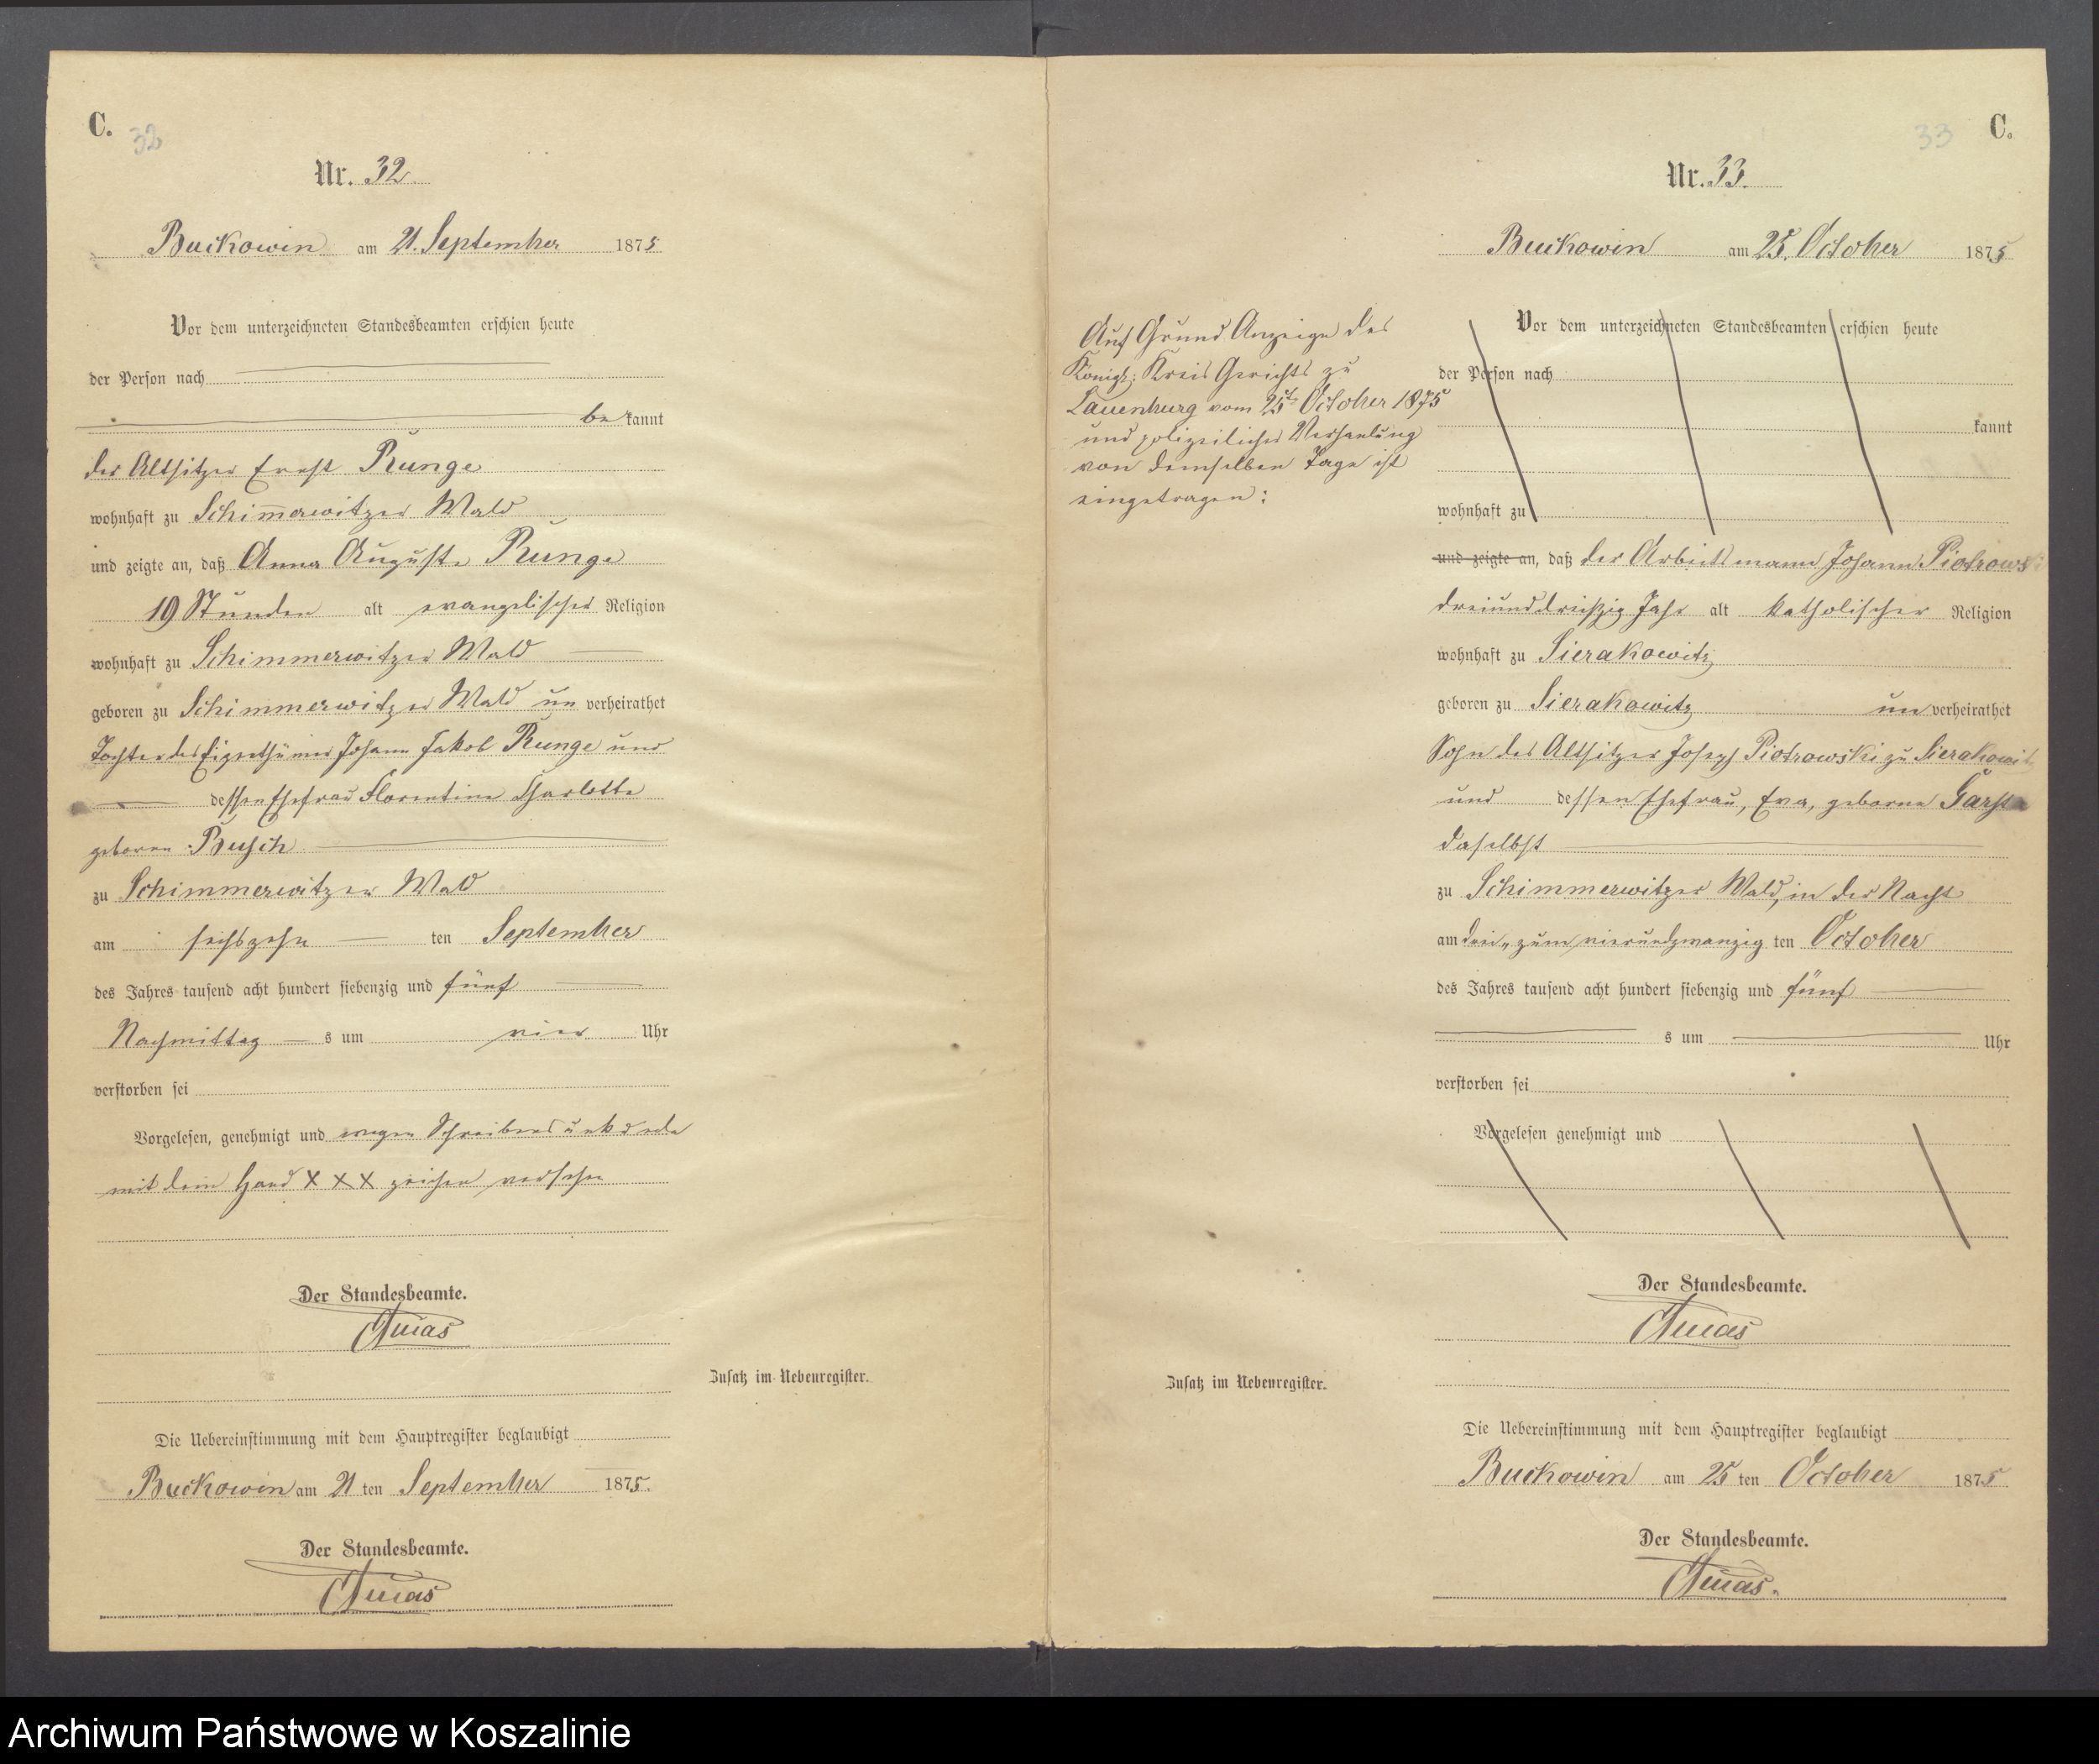 C.
32
Nr. 32.
Buckowin am 21. September 1875
Vor dem unterzeichneten Standesbeamten erschien heute
der Person nach
be kannt
der Altsitzer Ernst Runge
wohnhaft zu Schim̄erwitzer Wald
und zeigte an, daß Anna Auguste Runge
19 Stunden alt evangelischer Religion
wohnhaft zu Schimmerwitzer Wald
geboren zu Schimmerwitzer Wald un verheirathet
Tochter des Eigenthümer Johann Jakob Runge und
dessen Ehefrau Florentine Charlotte
geborne Busch
zu Schimmerwitzer Wald
am sechszehn ten September
des Jahres tausend acht hundert siebenzig und fünf
Nachmittag s um vier Uhr
verstorben sei
Vorgelesen, genehmigt und wegen Schreibens
mit dem Hand X X X zeichen versehen
Der Standesbeamte.
Die Uebereinstimmung mit dem Hauptregister beglaubigt
Buckowin am 21 ten September 1875.
Der Standesbeamte.
Zusatz im Nebenregister.
C.
33
Nr. 33.
Buckowin am 25. October 1875
Auf Grund Anzeige des
Königl: Kreis Gerichts zu
Lauenburg vom 25t. October 1875
und polizeilicher Verhanlung
von demselben Tage ist
eingetragen:
Vor dem unterzeichneten Standesbeamten erschien heute
der Person nach
kannt
wohnhaft zu
und zeigte an, daß der Arbeitsmann Johann Piotrowski
dreiunddreißig Jahr alt katholischer Religion
wohnhaft zu Sierakowitz
geboren zu Sierakowitz un verheirathet
Sohn des Altsitzer Joseph Piotrowski zu Sierakowitz
und dessen Ehefrau, Eva, geborne
daselbst
zu Schimmerwitzer Wald, in der Nacht
am drei- zum vierundzwanzig ten October
des Jahres tausend acht hundert siebenzig und fünf
s um Uhr
verstorben sei
Vorgelesen genehmigt und
Der Standesbeamte.
Zusatz im Nebenregister.
Die Uebereinstimmung mit dem Hauptregister beglaubigt
Buckowin am 25 ten October 1875
Der Standesbeamte.
Archiwum Państwowe w Koszalinie